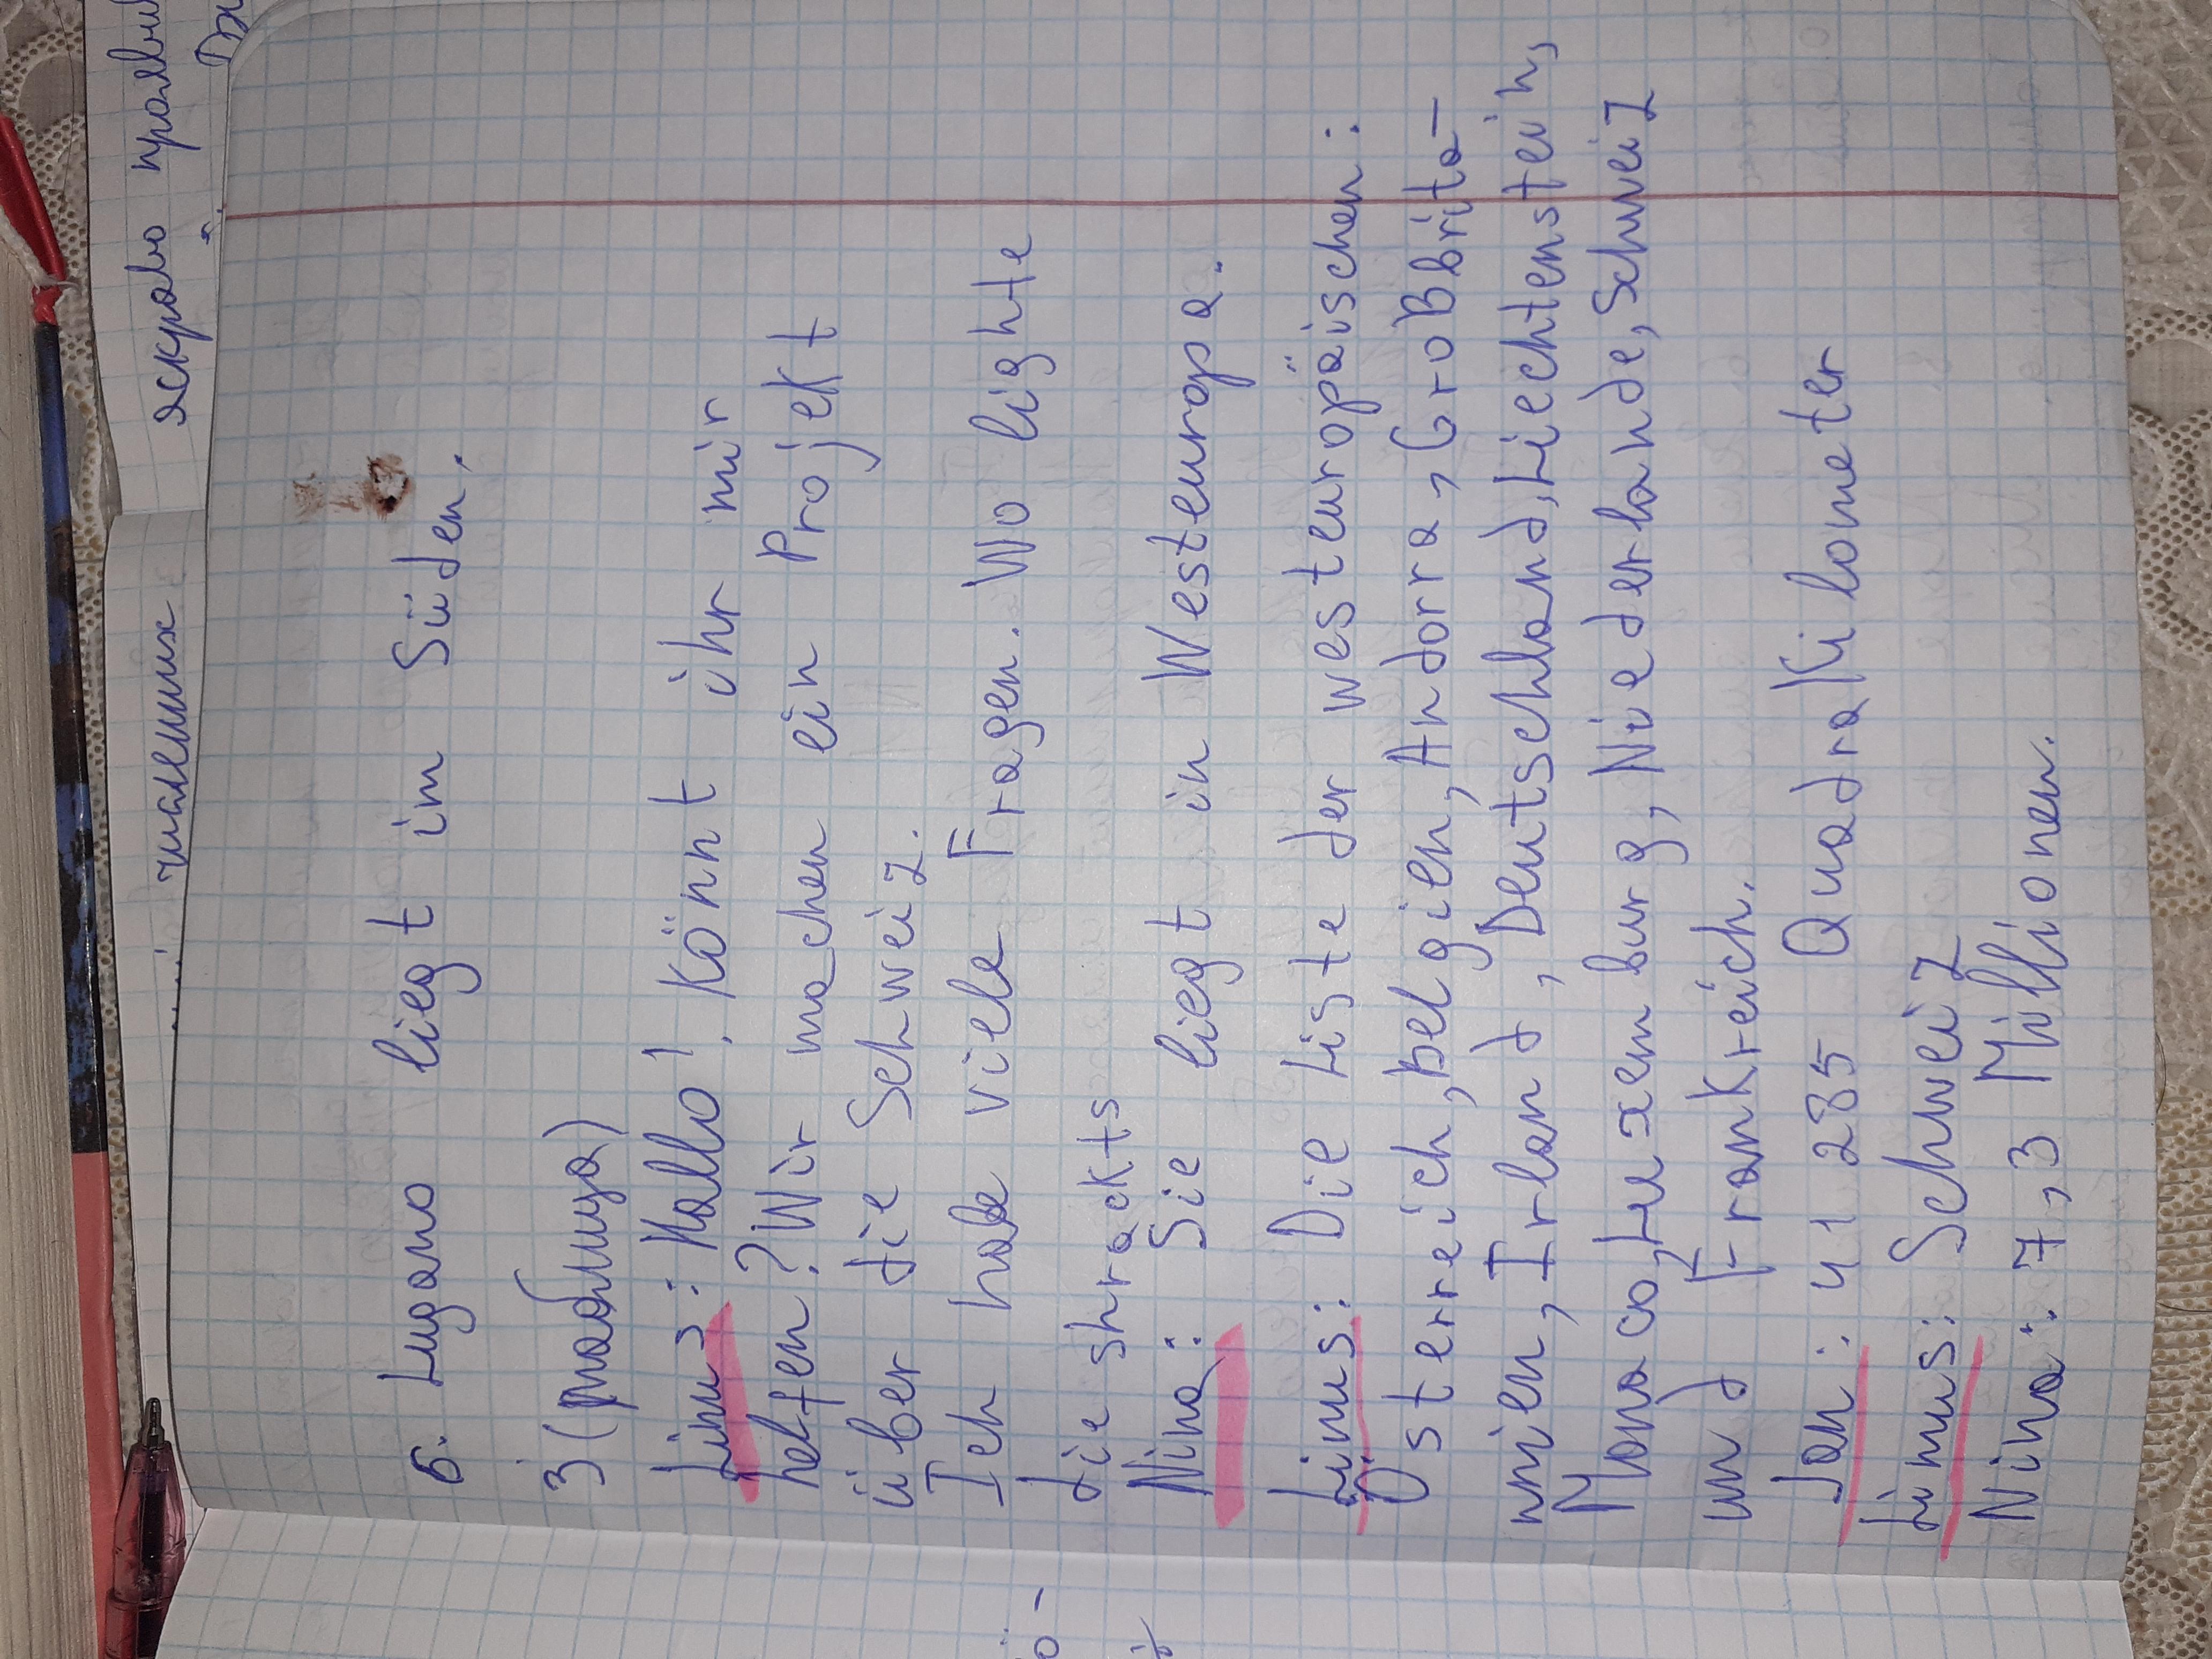 яскраво прояви
читаених
6. Lugano liegt im Süden.
3 (таблиця)
Linus: Hallo! Könnt ihr mir
helfen? Wir machen ein Projekt
über die Schweiz.
Ich habe viele Fragen. Wo lighte
die shräckts
Nina: Sie liegt in Westeuropa.
Linus: Die Liste der westeuropäischen:
Österreich, Belgien, Andorra, Großbrita-
nnien, Irland, Deutschland, Liechtenstein,
Monaco, Luxemburg, Niederlande, Schweiz
und Frankreich.
Jan: 41 285 Quadratkilometer
Linus: Schweiz
Nina: 7,3 Millionen.
ö-